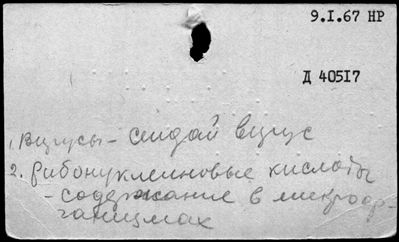 9.I.67 НР
Д 40517
1. Вирусы – сендай вирус
2. Рибонуклеиновые кислоты
- содержание в микроор-
ганизмах